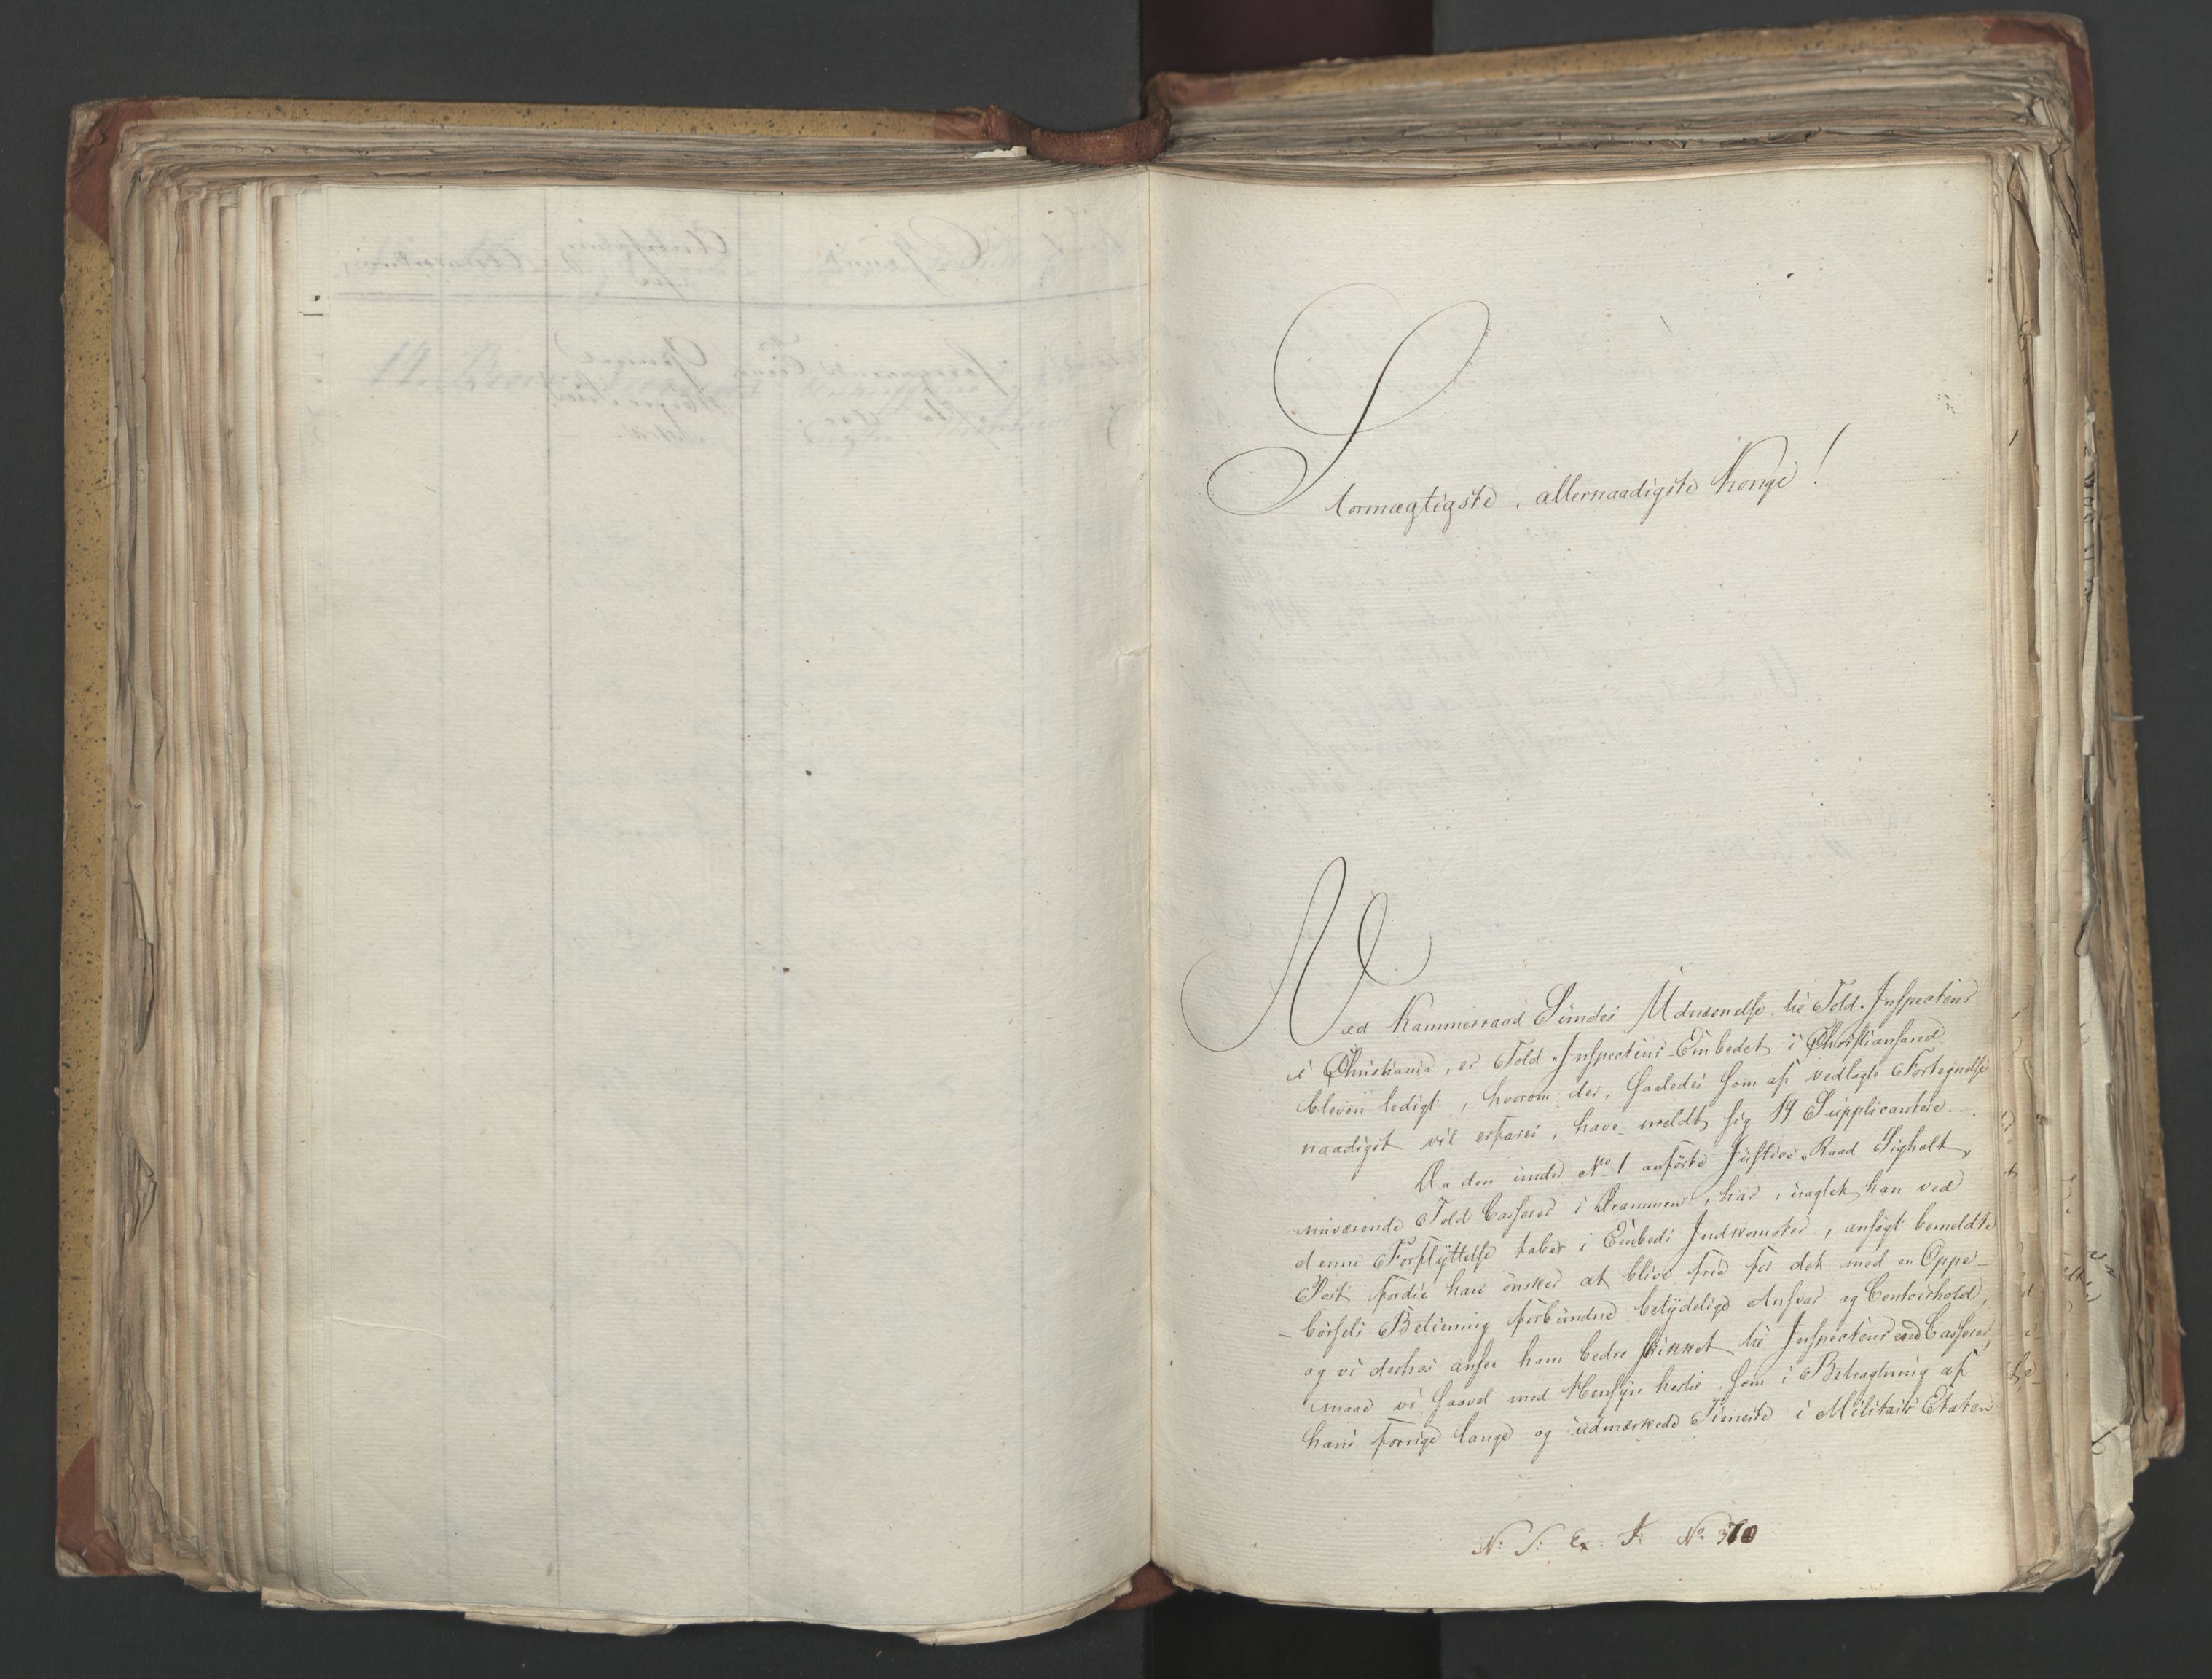 Stormægtigste, allernaadigste Konge!
Ved Kammerraad Sundes Udnævnelse til Told-Inspecteur
i Christiania, er Told-Inspecteur-Embedet i Christiansand
bleven ledigt, hvorom der, saaledes som af vedlagte Fortegnelse
naadigst vil erfares, have meldt sig 19 Supplicantere.
Da den under No 1 anførte Justice-Raad Sigholt,
nuværende Told Casserer i Drammen, har, uagtet han ved
denne Forflyttelse taber i Embeds Indkomster, ansøgt bemeldte
Post fordie han ønsker at blive frie for det med en Oppe-
børsels Betiening forbundne betydelige Ansvar og Contoirhold,
og vi derhos ansee ham bedre skikket til Inspecteur end Casserer,
maae vi saavel med Hensyn hertil som i Betragtning af
hans forrige lange og udmærkede Tieneste i Militair Etaten
N: S: Ex. J: No 370